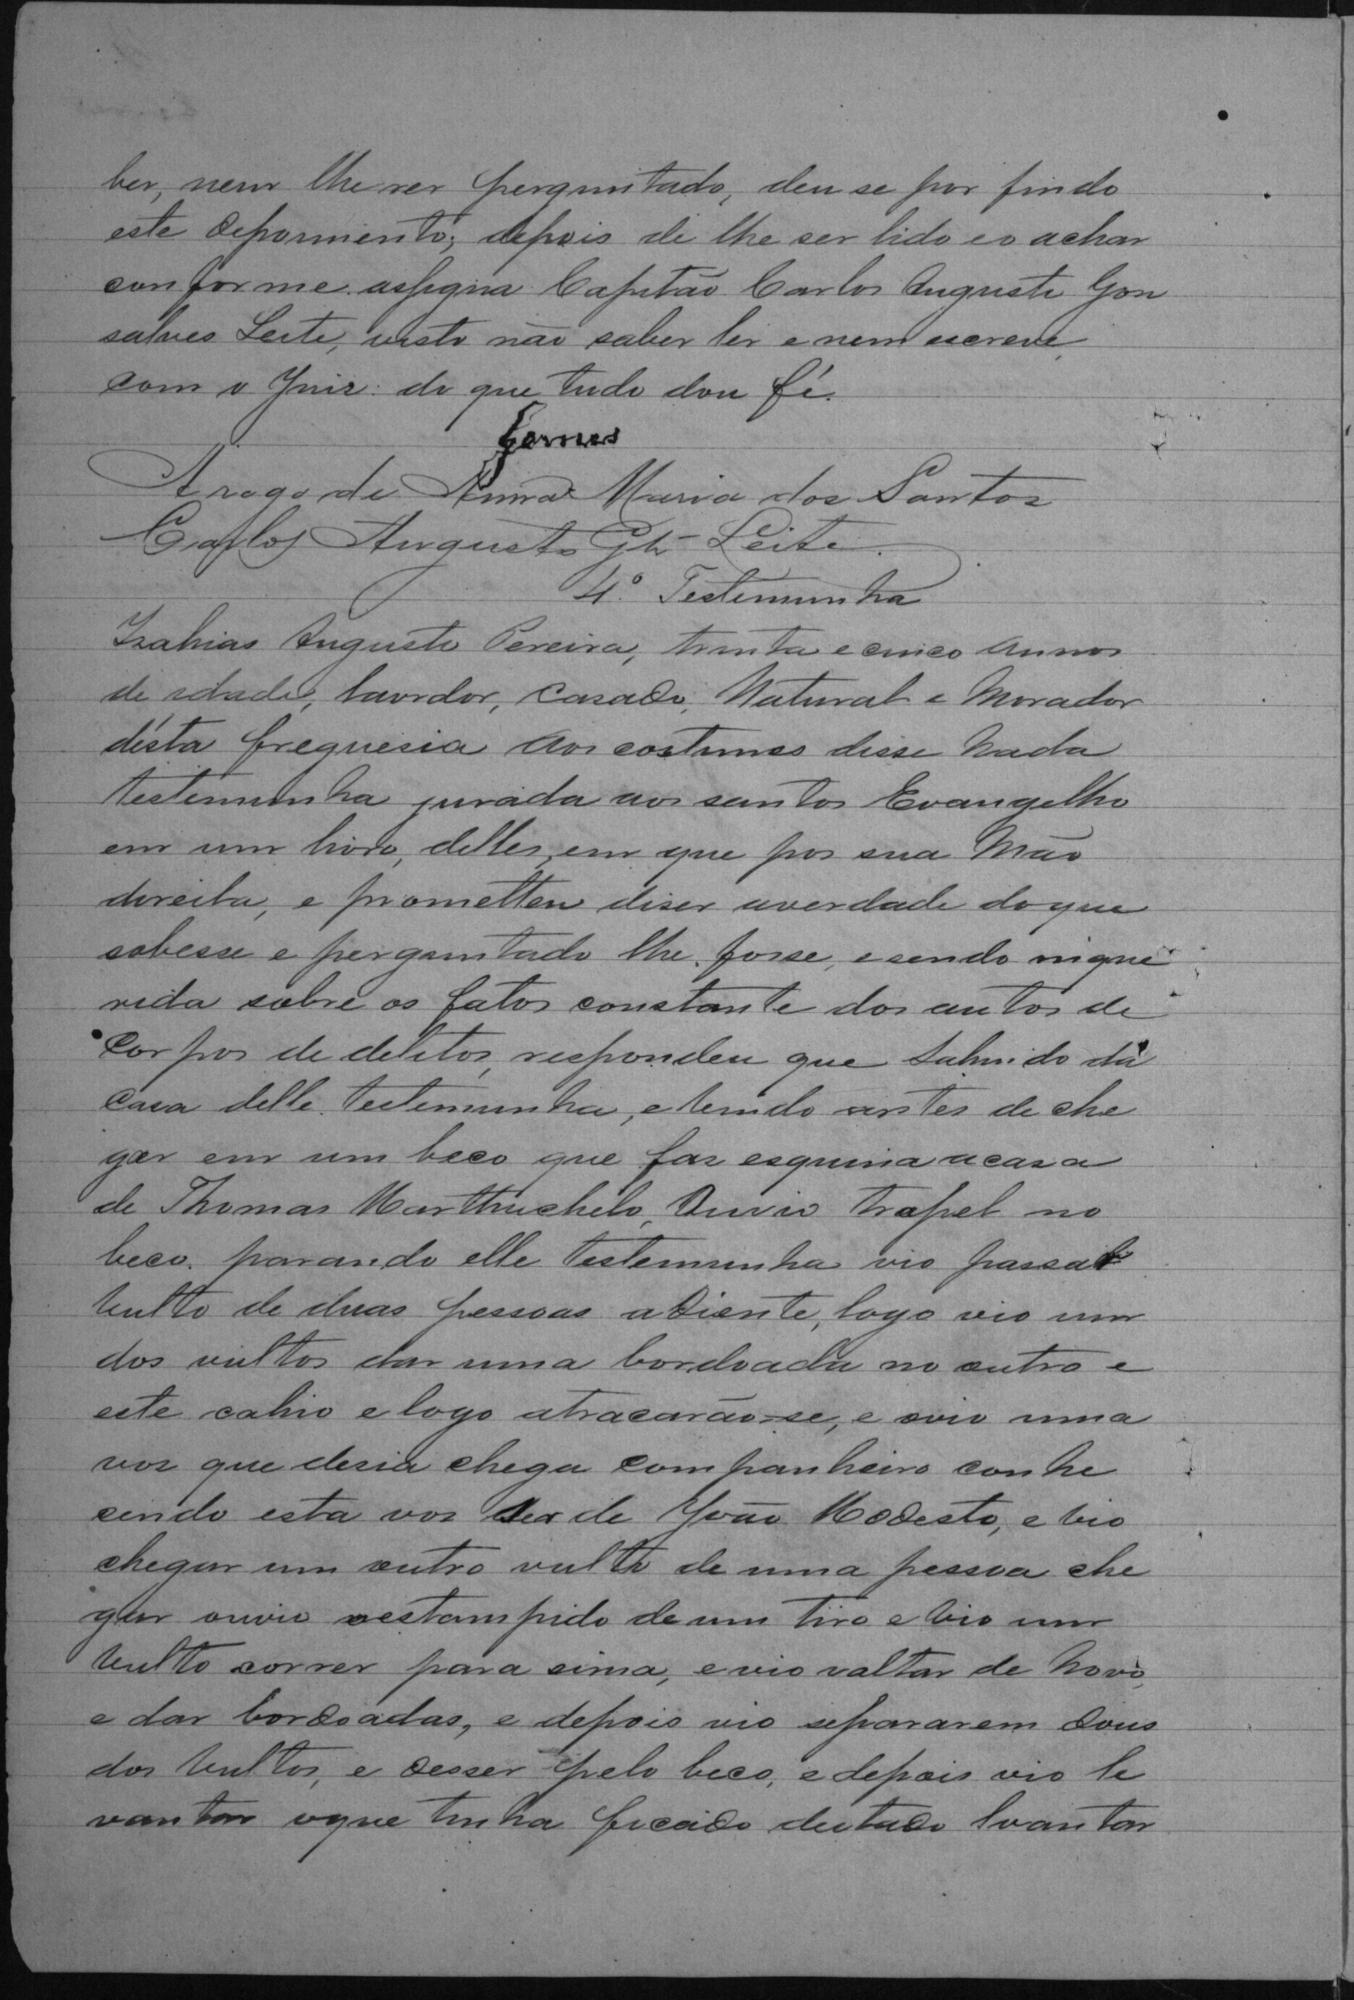 ber, nem lhe ser perguntado, deu se por findo
este depoimento; depois de lhe ser lido e o achar
conforme assigna Capitão Carlos Augusto Gon
salves Leite, visto não saber ler e nem escreve,
com o Juiz: do que tudo dou fé.
Gomes
A rogo de Anna Maria dos Santos
Carlos Augusto Glz Leite.
4º Testemunha
Izahias Augusto Pereira, trinta e cinco annos
de idade, lavrdor, casado, Natural e Morador
désta freguesia aos costumes disse Nada
testemunha jurada aos santos Evangelho
em um livro, delles, em que pos sua Mão
direita, e prometteu diser averdade doque
sobesse e perguntado lhe fosse, e sendo inque
rida sobre os fatos constante dos autos de
Corpos de delitos, respondeu que Sahindo da
casa delle testemunha, e vendo antes de che
gar em um beco que fas esquina acasa
de Thomas Marthuchelo, Ouvio tropel no
beco. parando elle testemunha vio passar
vulto de duas pessoas adiente, logo vio um
dos vultos dar uma bordoada no outro e
este cahio e logo atracarão-se, e ovio uma
vos que desia chega companheiro conhe
sendo esta vos ser de João Modesto, e vio
chegar um outro vulto de uma pessoa che
gar ouvio oestampido de um tiro e vio um
vulto correr para sima, e vio valtar de Novo,
e dar bordoadas, e depois vio separarem dous
dos vultos, e desser pelo beco, e depois vio le
vantar oque tinha ficado deitado lvantar